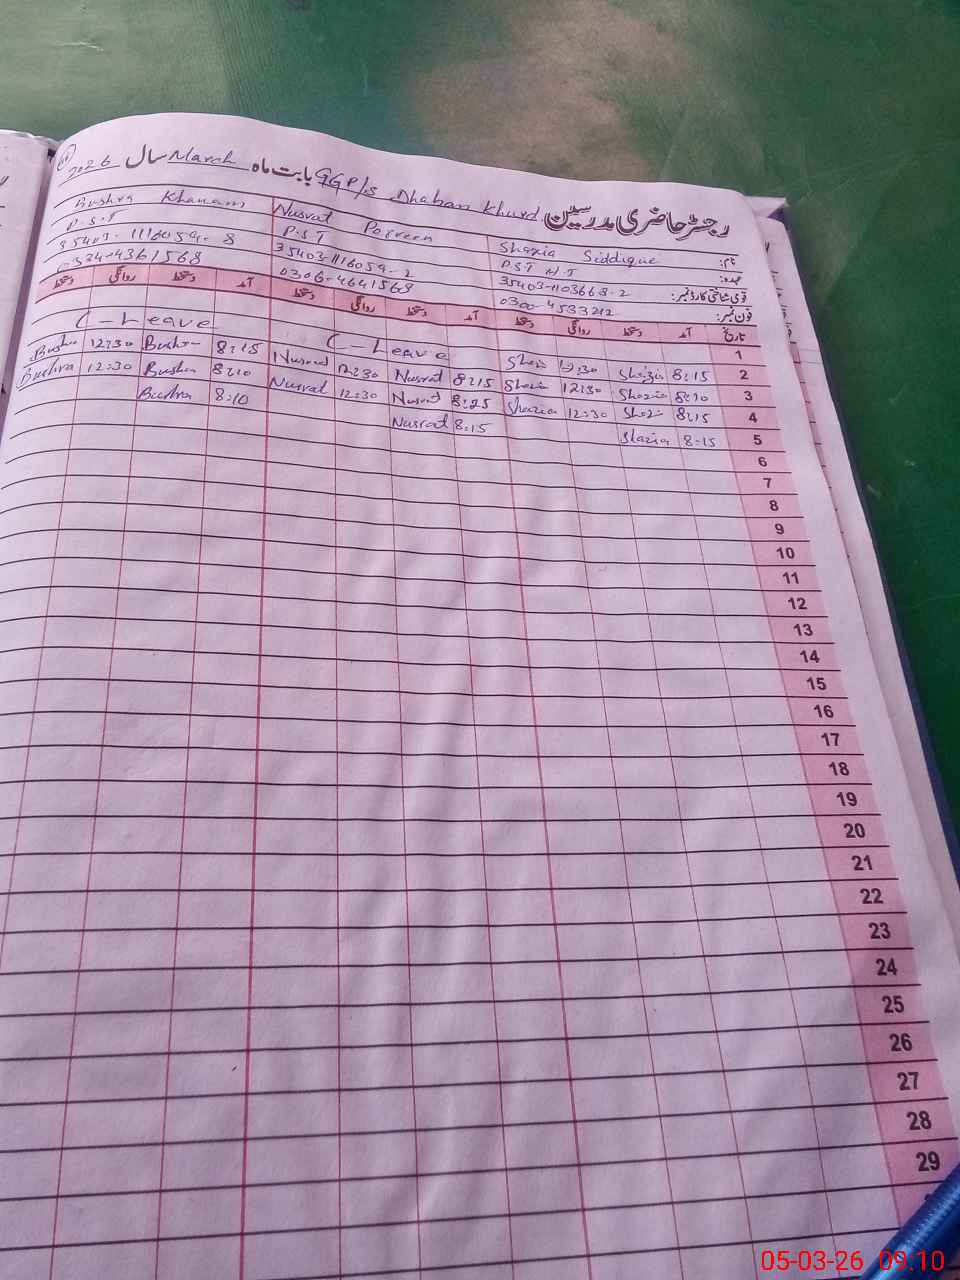 رجسٹر حاضری مدرسین GGP/s Dhaban Khurd بابت ماہ March سال 2026
نام: Shazia Siddique Nusrat Perveen Bushra Khanam
عہدہ: P.S.T H.T P.S.T P.S.T
قومی شناختی کارڈ نمبر: 35403-1103668-2 35403-1116059-2 35403-1116059-8
فون نمبر: 0300-4533212 0306-4641569 0324-4361568
تاریخ آمد دستخط روانگی دستخط آمد دستخط روانگی دستخط آمد دستخط روانگی دستخط
1 8:15 Shazia 12:30 Shazia C-Leave C-Leave
2 8:15 Shazia 12:30 Shazia 8:15 Nusrat 12:30 Nusrat 8:15 Bushra 12:30 Bushra
3 8:10 Shazia 12:30 Shazia 8:25 Nusrat 12:30 Nusrat 8:10 Bushra 12:30 Bushra
4 8:15 Shazia 8:15 Nusrat 8:10 Bushra
5 8:15 Shazia
6
7
8
9
10
11
12
13
14
15
16
17
18
19
20
21
22
23
24
25
26
27
28
29
05-03-26 09:10